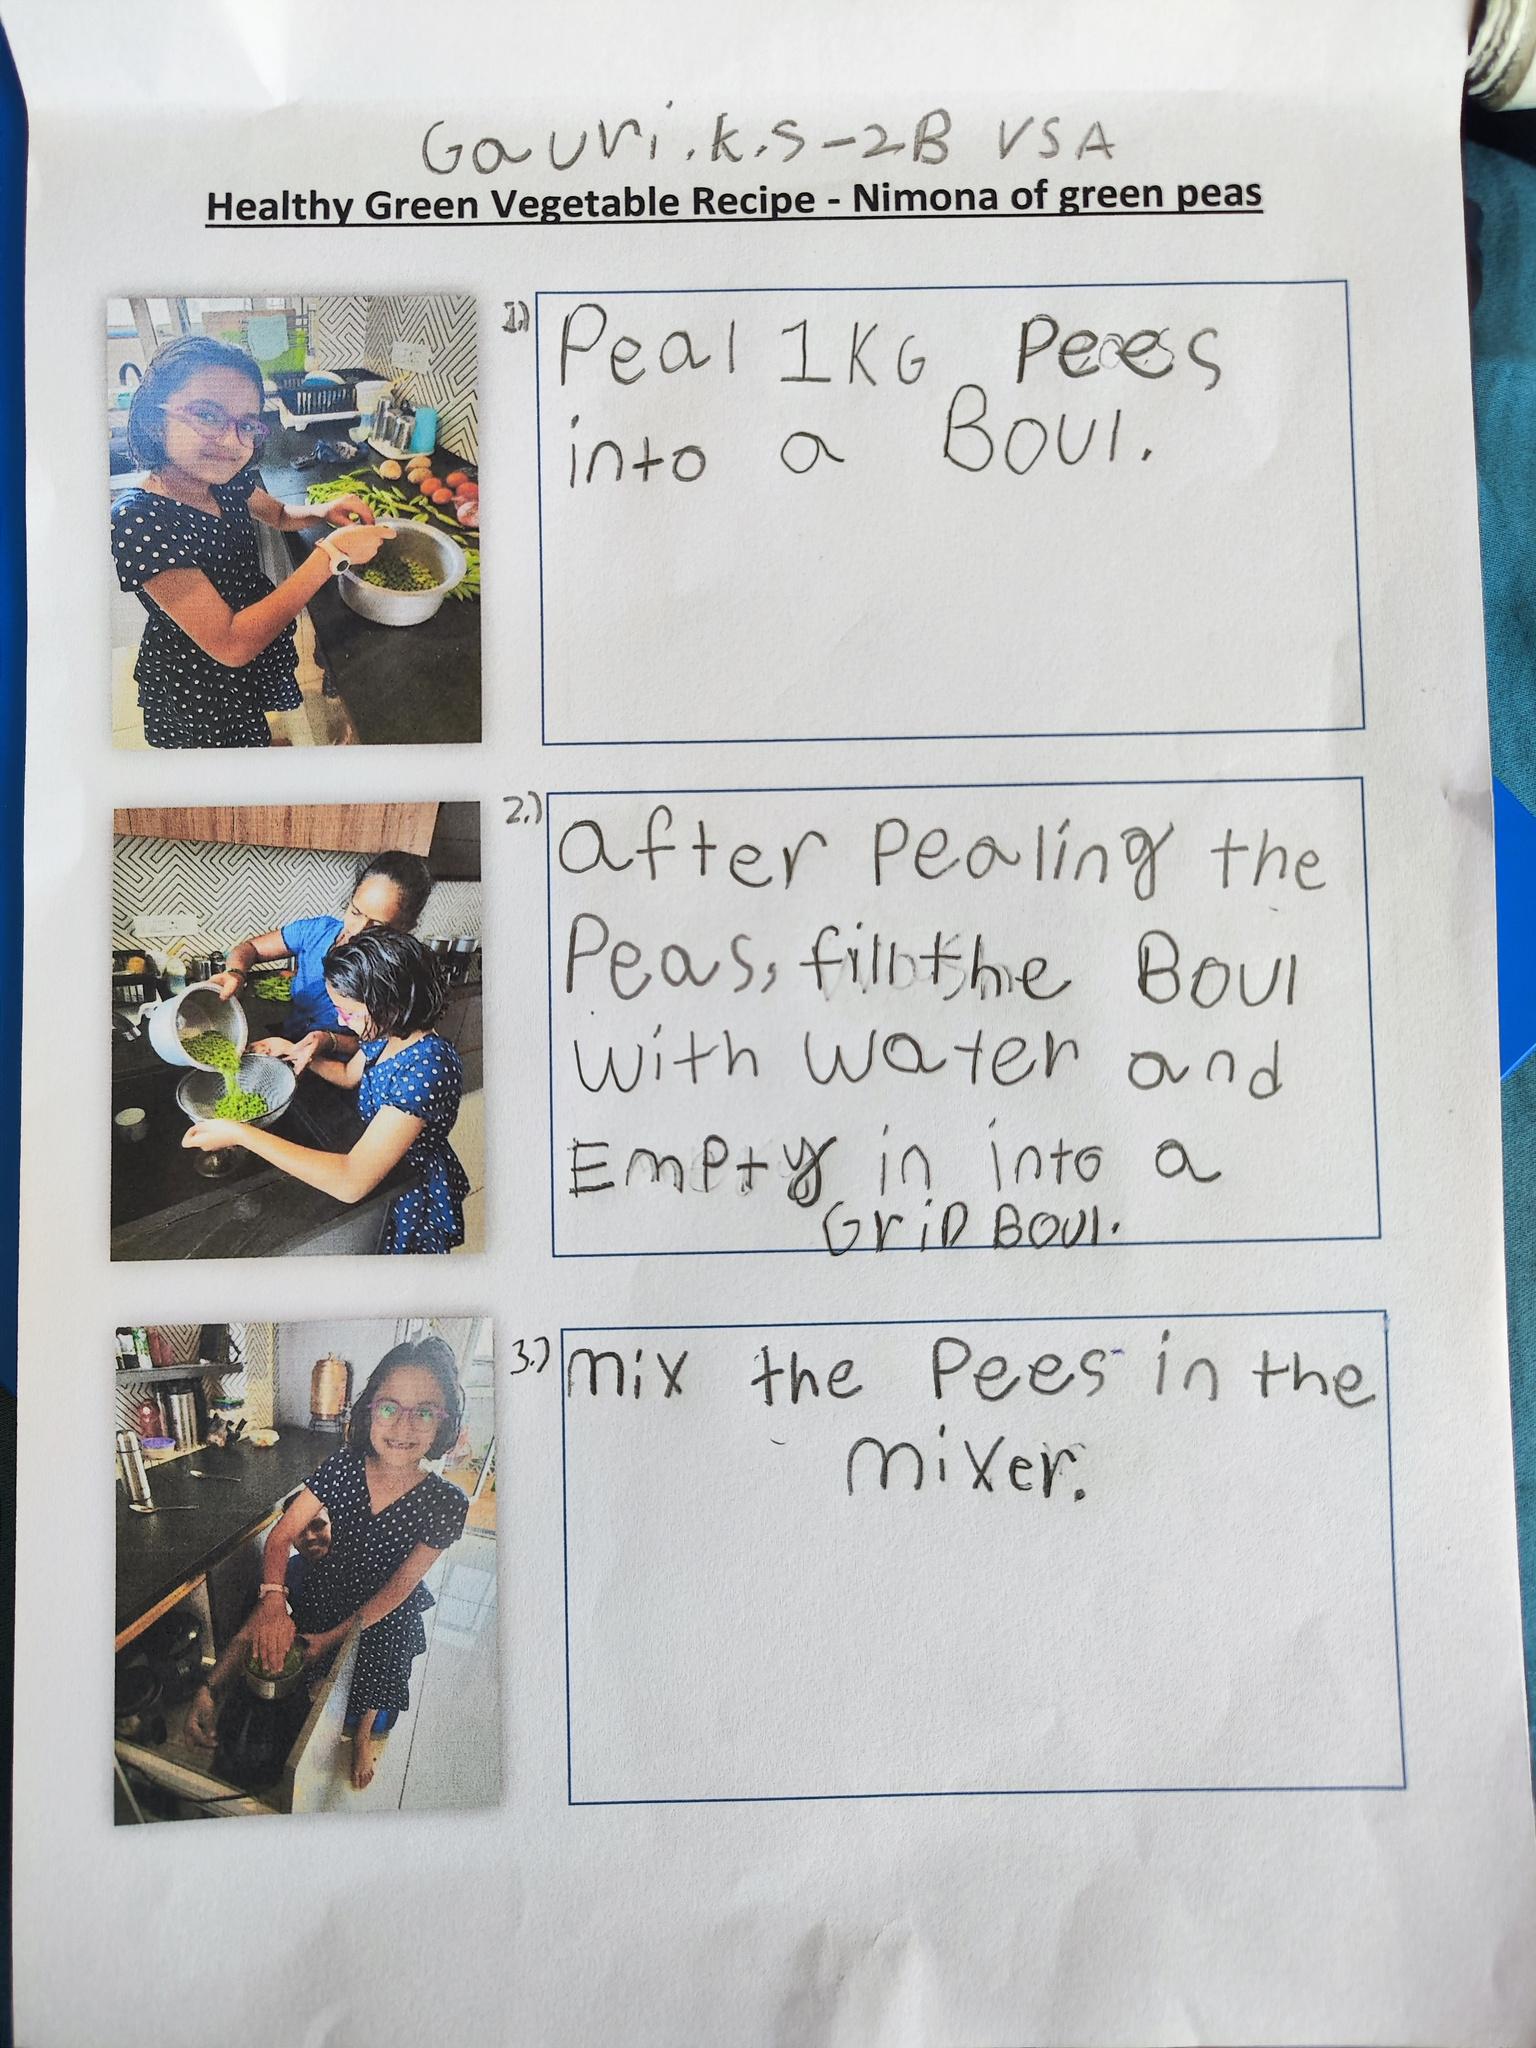 Gauri.K.S-2B VSA
Healthy Green Vegetable Recipe - Nimona of green peas
1.) Peal 1KG Pees
into a Boul.
2.) after Pealing the
Peas, fill the Boul
with water and
Empty in into a
GriD BOUl.
3.) mix the Pees in the
mixer.